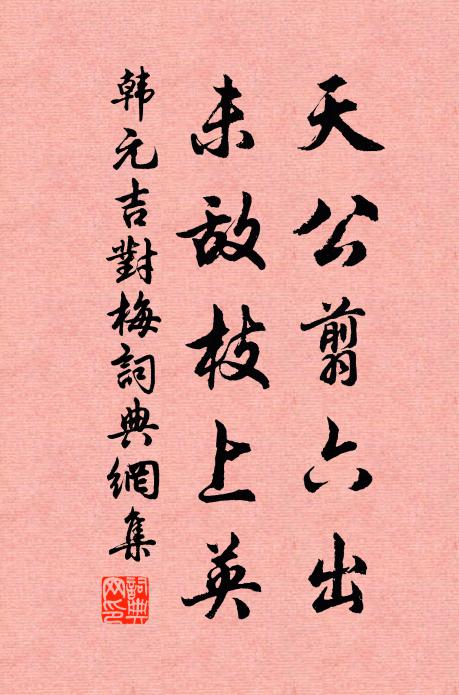 天公剪六出
未敌枝上英
韩元吉對梅詞典網集
詞典网印